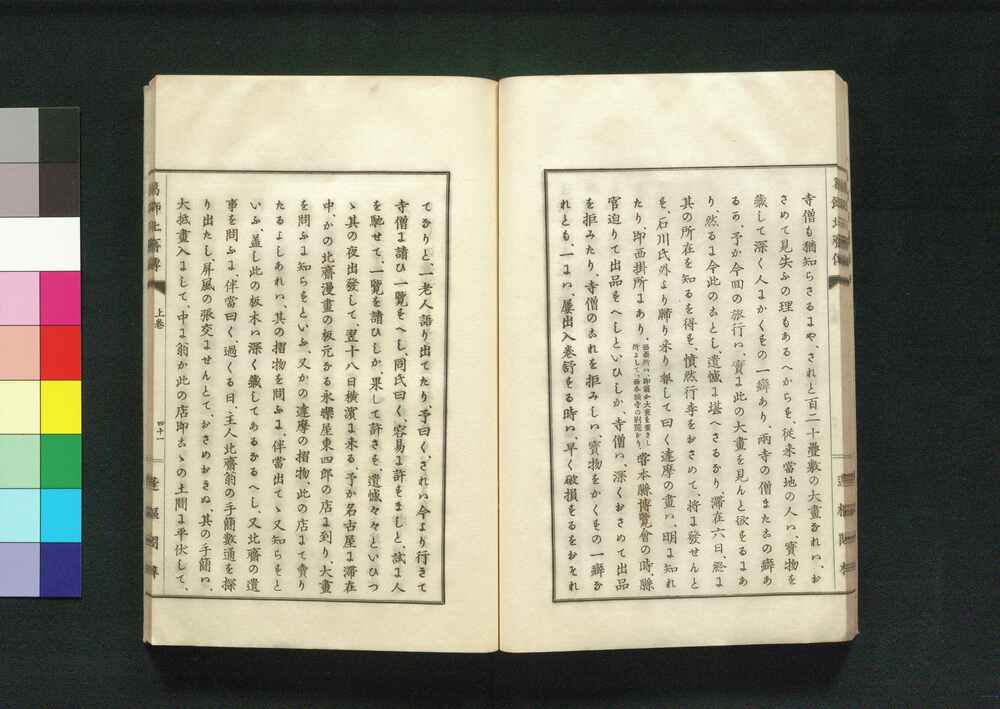 寺僧も猶知らさるにや、されと百二十疊敷の大畫なれハ、お
さめて見失ふの理もあるへからを、從来當地の人ハ、寶物を
藏して深く人にかくをの一癖あり、兩寺の僧また古の癖あ
るか、予か今回の旅行ハ、實に此の大畫を見んと欲をるにあ
り、然るに今此の古とし、遺憾に堪へさるなり、滞在六日、終に
其の所在を知るを得を、憤然行李をおさめて、将に發せんと
を、石川氏外より歸り来り報して曰く達摩の畫ハ、明に知れ
たり、即西掛所にあり、
當本縣博覽會の時、縣
官迫りて出品をへしといひしか、寺僧ハ、深くおさめて出品
を拒みたり、寺僧の古れを拒みしハ、寳物をかくをの一癖な
れとも、一にハ、屢出入卷舒をる時ハ、早く破損をるをおそれ
てなりと、一老人語り出てたり、予曰く、されハ今より行きて
寺僧に請ひ一覽をへし、同氏曰く容易に許をましと、試に人
を馳せて、一覽を請ひしか、果して許さを、遺憾々々といひつ
ゝ其の夜出發して、翌十八日横濱に来る、予か名古屋に滞在
中、かの北齋漫畫の板元なる永樂屋東四郎の店に到り大畫
を問ふに知らをといふ、又かの達摩の摺物、此の店にて賣り
たるよしあれハ、其の摺物を問ふに、伴當出てゝ又知らをと
いふ、蓋し此の板木ハ深く藏してあるなるへし、又北齋の遺
事を問ふに、伴當曰く、過くる日、主人北齋翁の手簡數通を探
り出たし、屏風の張交にせんとて、おさめおきぬ、其の手簡ハ、
大抵畫入にして、中に翁か此の店即古ゝの土間に平伏して、
葛飾北齋傳
上卷
四十一